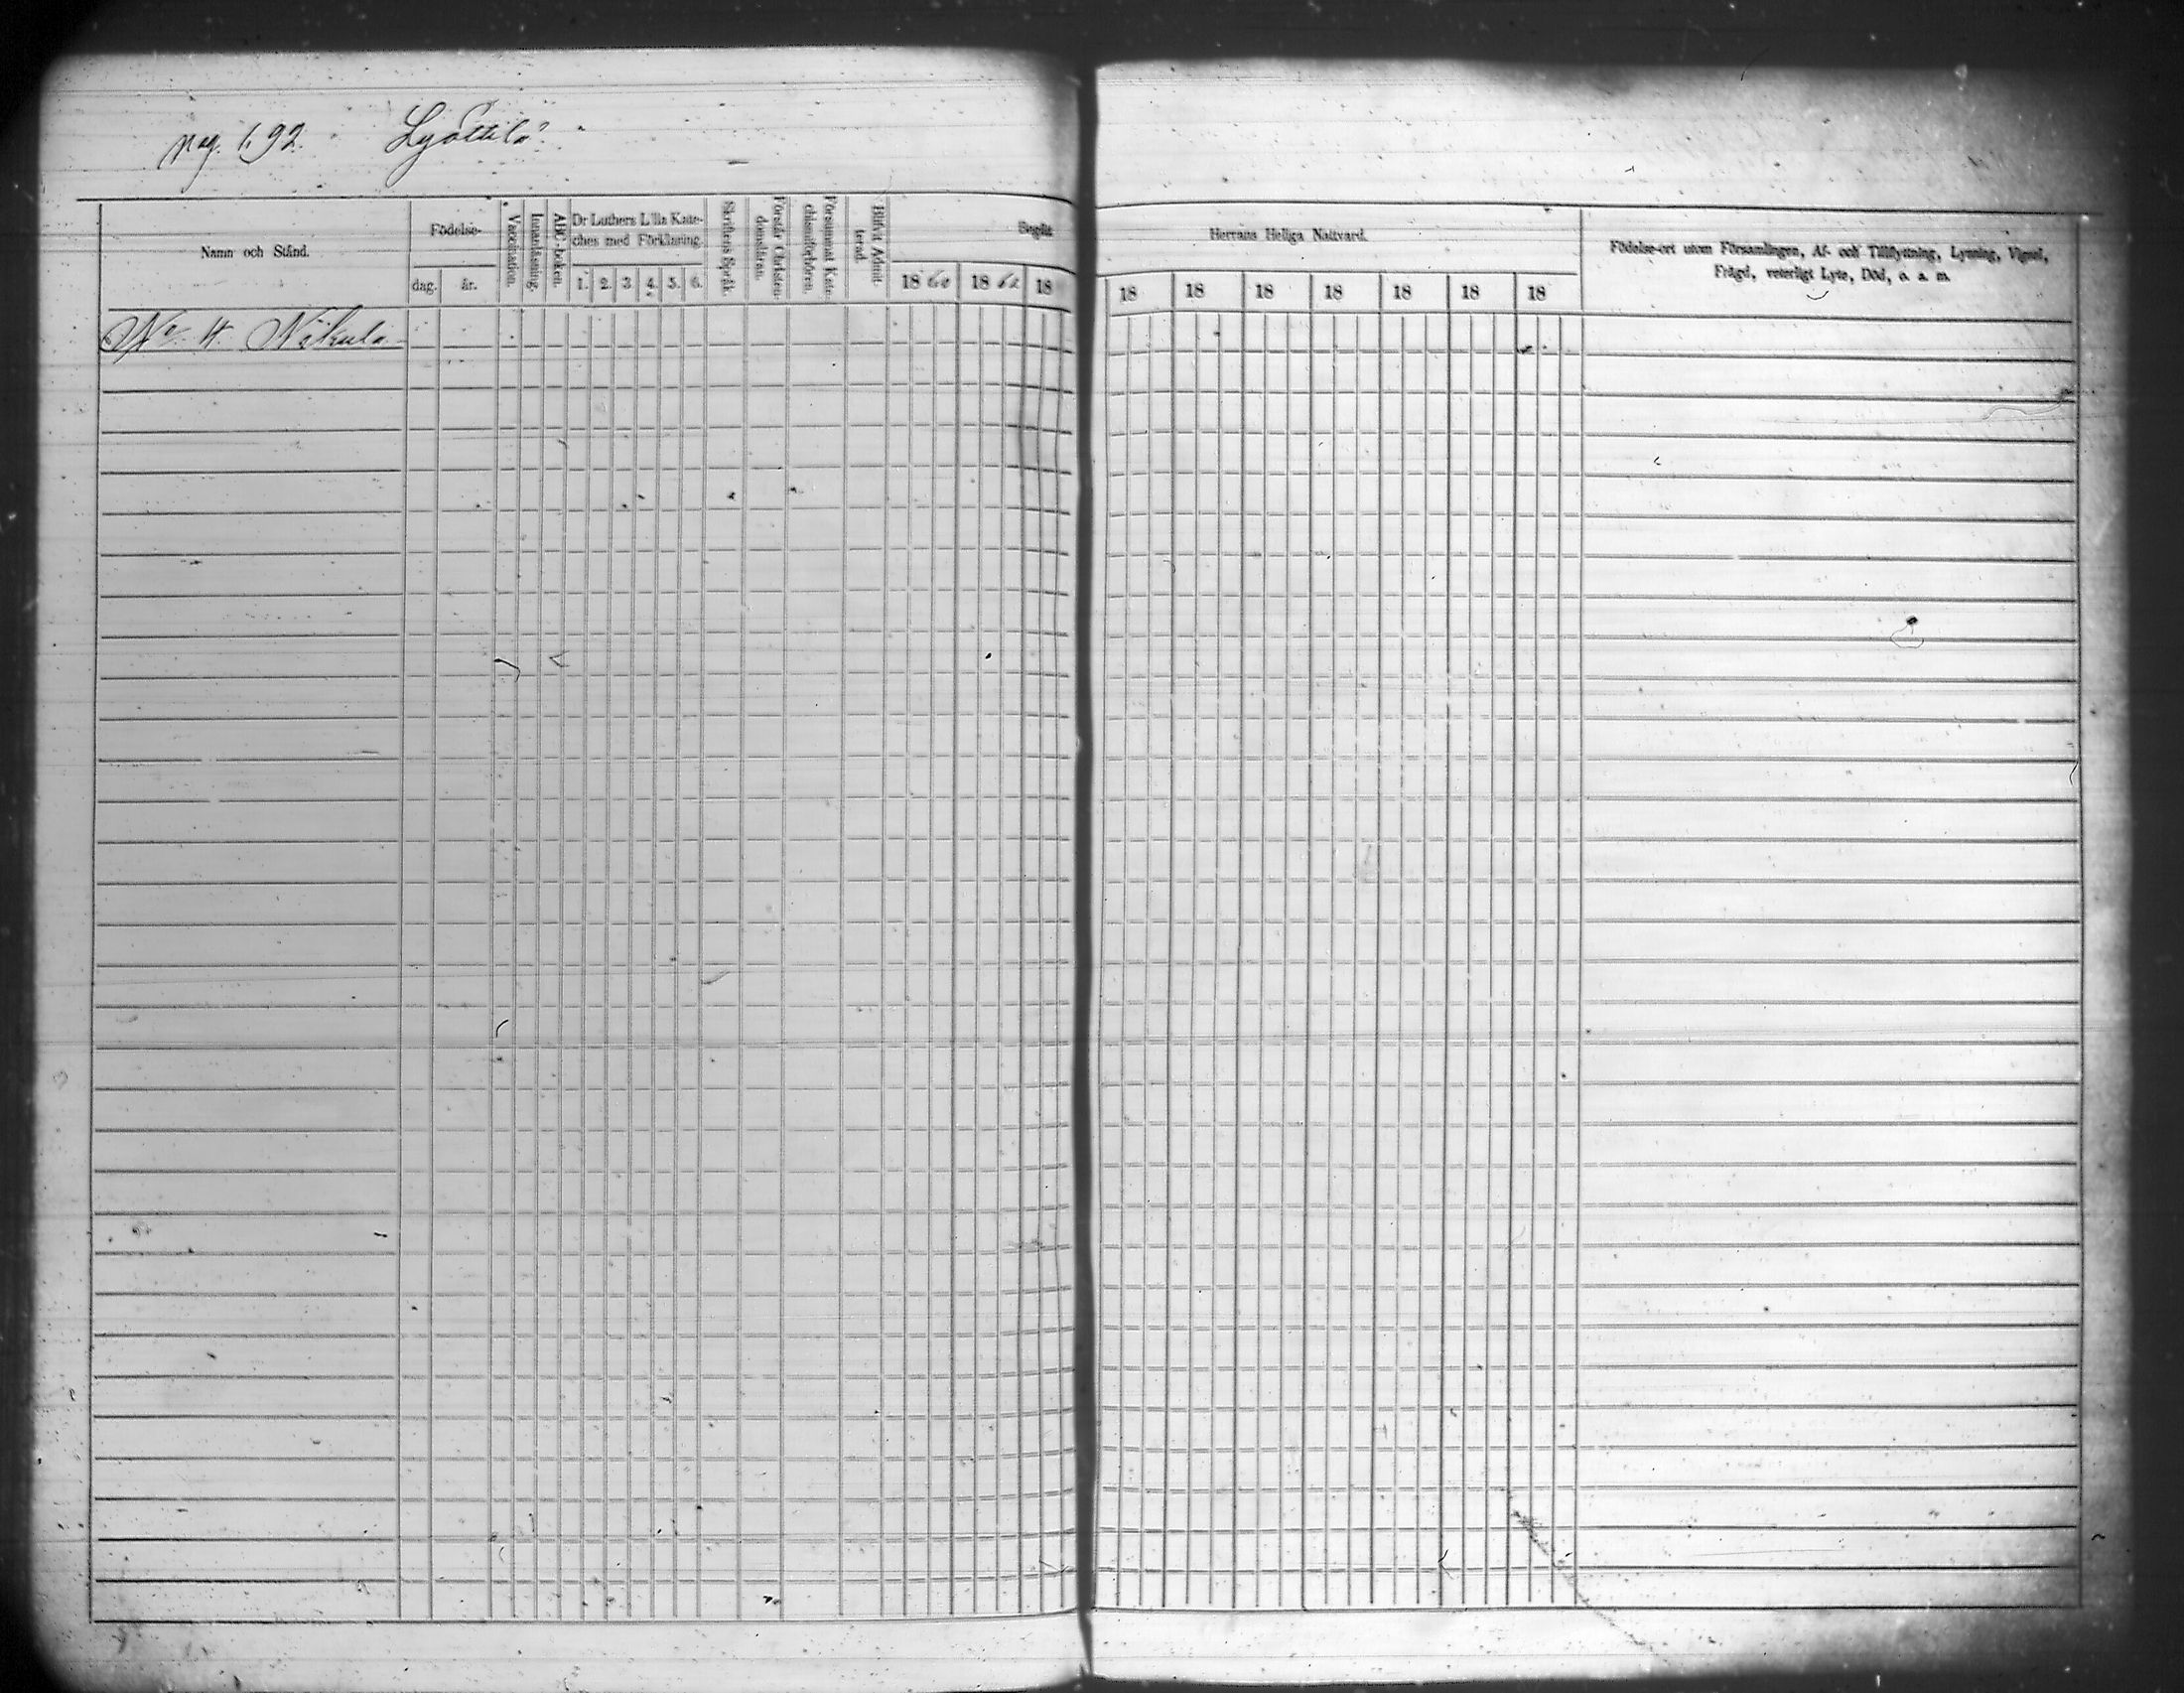 pag. 192. Lyöttilä
Namn och Stånd.
Födelse-
dag.
år.
Vaccination.
Innanläsning.
ABC-boken.
Dr Luthers Lilla Kate-
ches med Förklaring.
1. 2. 3. 4. 5. 6.
Skriftens Språk.
Förstår Christen-
domsläran.
Försummat Kate-
chismiförhören.
Blifvit Admit-
terad.
Begått
1860 1862 18
Herrans Heliga Nattvard.
18 18 18 18 18 18 18
Födelse-ort utom Församlingen, Af- och Tillflyttning, Lysning, Vigsel,
Frägd, veterligt Lyte, Död, o. s. m.
No 4. Nikula